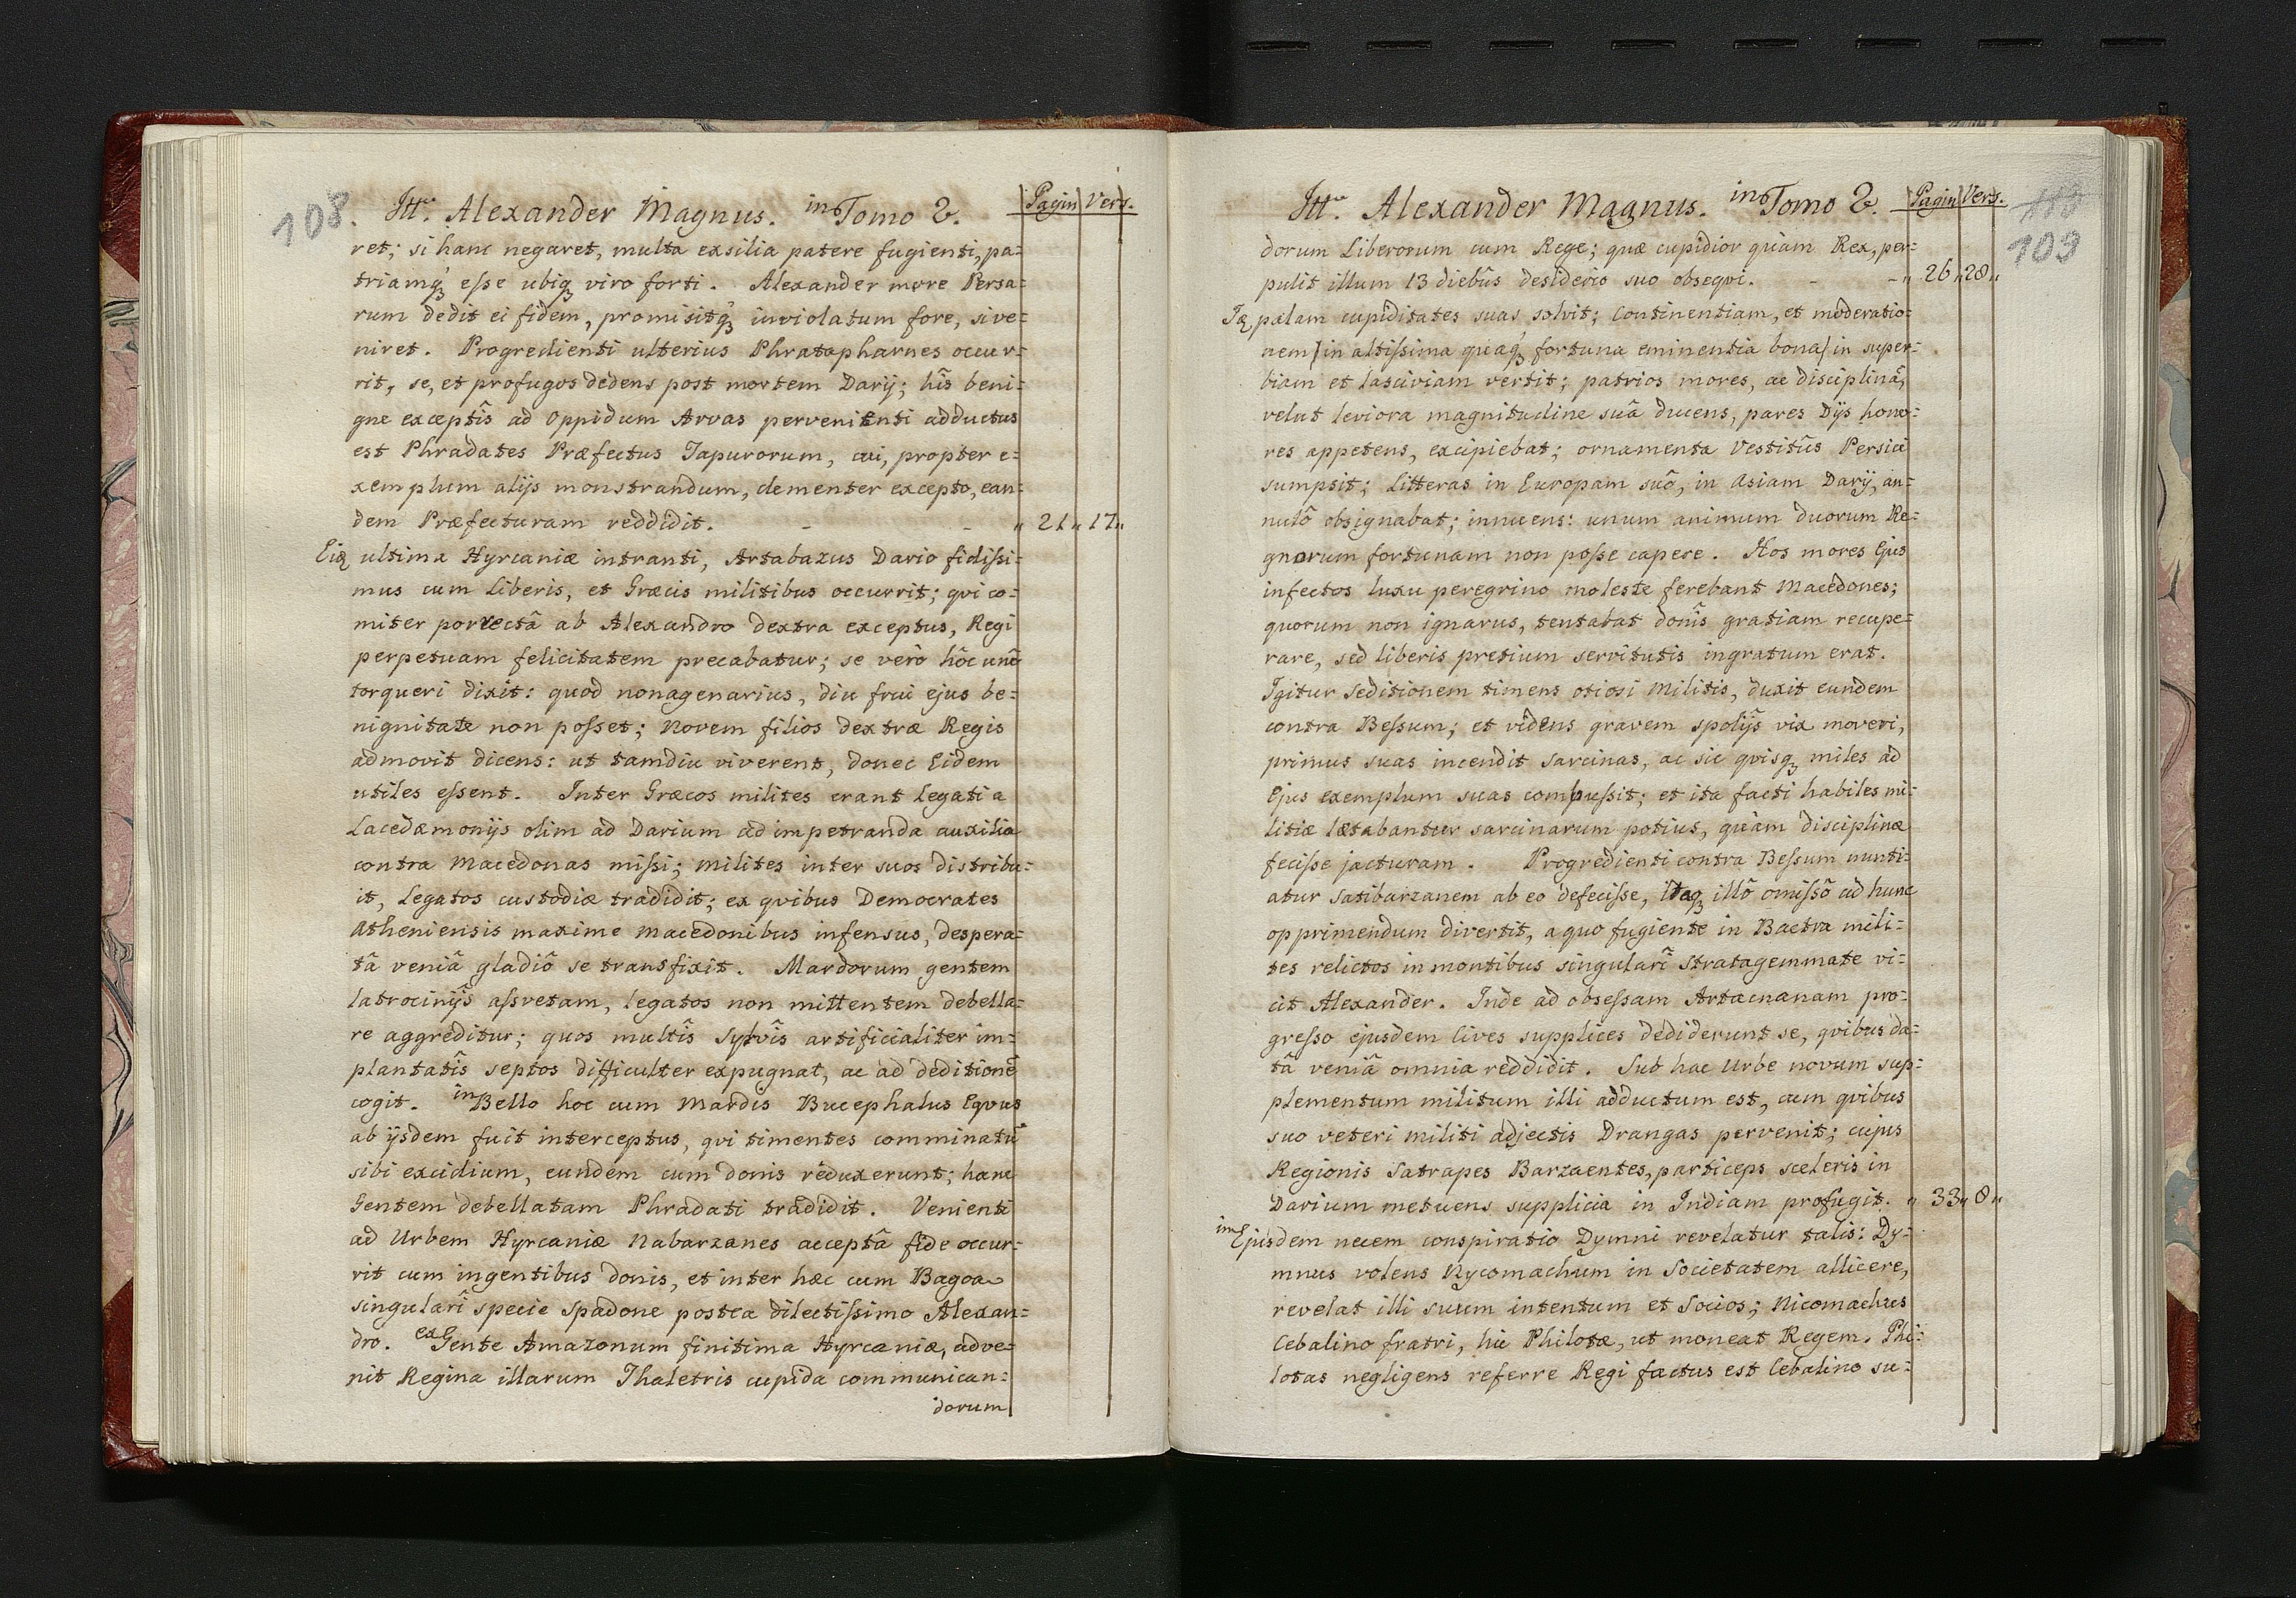 108.
Itt. Alexander Magnus. in Tomo 2.
Pagin Vers.
ret; si hanc negaret, multa exsilia patere fugienti, pa=
triamq́ʒ eſse ubiqʒ viro forti. Alexander more Persa=
rum dedit ei fidem, promisitq́ʒ inviolatum fore, si ve=
niret. Progredienti ulterius Phratapharnes occur=
rit, se, et profugos dedens post mortem Darij; hîs beni=
gne exceptîs ad oppidum Arvas pervenienti adductus
est Phradates Præfectus Tapurorum, cui, propter e=
xemplum alijs monstrandum, clementer excepto, ean=
dem Præfecturam reddidit. - - „ 21„ 17„
Eiqʒ ultima Hyrcaniæ intranti, Artabazus Dario fidiſsi=
mus cum Liberis, et Græcis militibus occurrit; qvi co=
miter porrectâ ab Alexandro dextra exceptus, Regi
perpetuam felicitatem precabatur; se verò hôc unô
torqueri dixit: quod nonagenarius, diu frui ejus be=
nignitate non poſset; Novem filios dextræ Regis
admovit dicens: ut tamdiu viverent, donec Eidem
utiles eſsent. Inter Græcos milites erant Legati a
Lacedæmonijs olim ad Darium ad impetranda auxilia
contra Macedonas miſsi; milites inter suos distribu=
it, Legatos custodiæ tradidit; ex qvibus Democrates
Atheniensis maxime Macedonibus infensus, despera=
tâ veniâ gladiô se transfixit. Mardorum gentem
latrocinijs aſsvetam, legatos non mittentem debella=
re aggreditur; quos multîs sylvîs artificialiter im=
plantatîs septos difficulter expugnat, ac ad deditionē
cogit. in Bello hoc cum Mardis Bucephalus Eqvus
ab ijsdem fuit interceptus, qvi timentes comminatū
sibi excidium, eundem cum donis reduxerunt; hanc
Gentem debellatam Phradati tradidit. Venienti
ad Urbem Hyrcaniæ Nabarzanes acceptâ fide occur=
rit cum ingentibus donis, et inter hæc cum Bagoa
singularî specie spadone postea dilectiſsimo Alexan=
dro. ex Gente Amazonum finitima Hyrcaniæ, adve=
nit Regina illarum Thaletris cupida communican=
dorum
Itt. Alexander Magnus. in Tomo 2.
Pagin Vers.
109
dorum Liberorum cum Rege; quæ cupidior quàm Rex, per=
pulit illum 13 diebûs desiderio suo obseqvi. - -„ 26„28„
Iqʒ palam cupiditates suas solvit; Continentiam, et moderatio=
nem (in altiſsima quaq́ʒ fortuna eminentia bona) in super=
biam et lasciviam vertit; patrios mores, ac disciplinā,
velut leviora magnitudine suâ ducens, pares Dijs hono=
res appetens, excipiebat; ornamenta Vestitûs Persici
sumpsit; Litteras in Europam suô, in Asiam Darij, an=
nulô obsignabat; innuens: unum animum duorum Re=
gnorum fortunam non poſse capere. Hos mores Ejus
infectos luxu peregrino moleste ferebant Macedones;
quorum non ignarus, tentabat donîs gratiam recupe=
rare, sed liberis pretium servitutis ingratum erat.
Igitur seditionem timens otiosi Militis, duxit eundem
contra Beſsum; et videns gravem spolijs vix moveri,
primus suas incendit sarcinas, ac sic qvisqʒ miles ad
Ejus exemplum suas combuſsit; et ita facti habiles mi=
litiæ lætabantur sarcinarum potius, quàm disciplinæ
feciſse jacturam. Progredienti contra Beſsum nunti=
atur Satibarzanem ab eo defeciſse, itaqʒ illô omiſsô ad hunc
opprimendum divertit, a quo fugiente in Bactra mili=
tes relictos in montibus singularî stratagemmate vi=
cit Alexander. Inde ad obseſsam Artacnanam pro=
greſso ejusdem Cives supplices dediderunt se, qvibus da=
tâ veniâ omnia reddidit. Sub hac Urbe novum sup=
plementum militum illi adductum est, cum qvibus
suo veteri militi adjectis Drangas pervenit; cujus
Regionis Satrapes Barzaentes, particeps sceleris in
Darium metuens supplicia in Indiam profugit. „ 33„ 8„
in Ejusdem necem conspiratio Dymni revelatur talis: Dy=
mnus volens Nycomachum in Societatem allicere,
revelat illi suum intentum et Socios; Nicomachus
Cebalino fratri, hic Philotæ, ut moneat Regem. Phi=
lotas negligens referre Regi factus est Cebalino su=